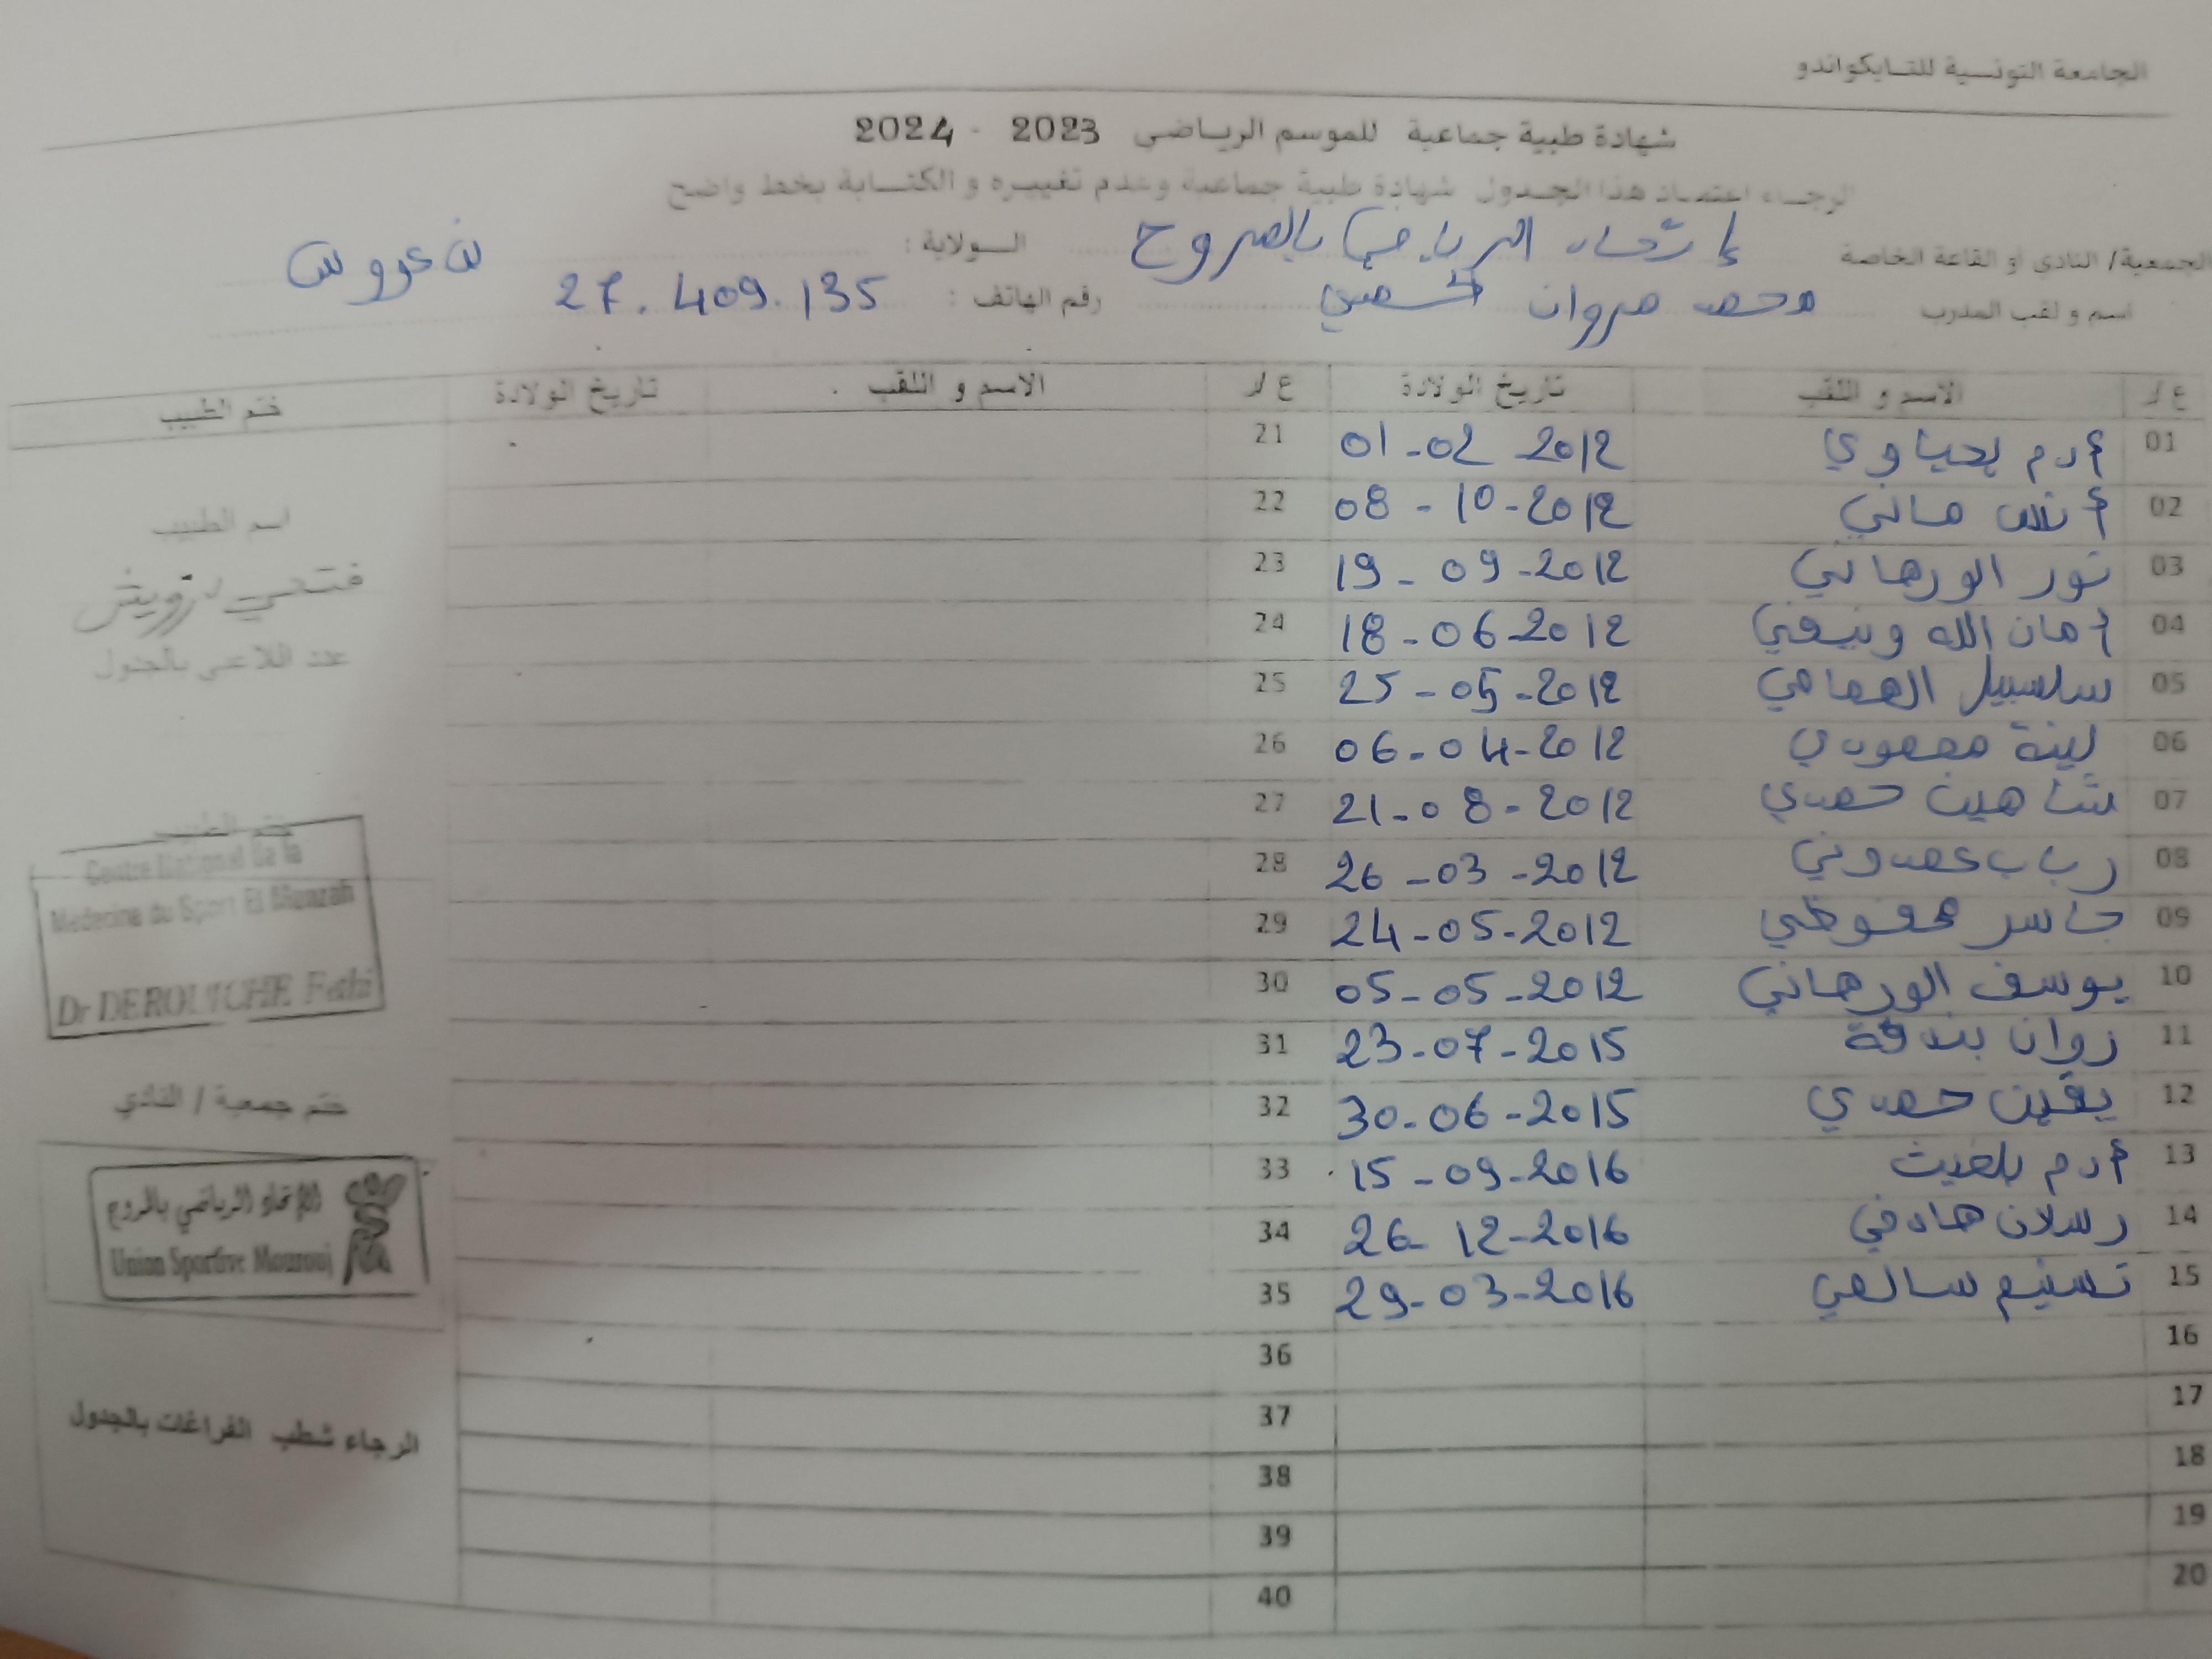 الجامعة التونسية للتايكواندو
شهادة طبية جماعية للموسم الرياضي 2023 - 2024
الرجاء اعتماد هذا الجدول شهادة طبية جماعية وعدم تغييره و الكتابة بخط واضح
الجمعية/ النادي او القاعة الخاصة إتحاد الرياضي بالمروج الولاية : بن عروس
اسم و لقب المدرب محمد مروان رقم الهاتف : 27.409.135
ع/د الاسم و اللقب تاريخ الولادة ع/د الاسم و اللقب تاريخ الولادة ختم الطبيب
01 آدم يحياوي 01-02-2012 21
02 أنس ماني 08-10-2012 22
اسم الطبيب
03 نور الورهاني 19-09-2012 23
فتحي درويش
04 أمان الله ونيفي 18-06-2012 24
عدد اللاعبي بالجدول
05 سلسبيل الهمامي 25-05-2012 25
06 لينة 06-04-2012 26
07 شاهين حمدي 21-08-2012 27
ختم الطبيب
08 رباب عمدوني 26-03-2012 28
Centre National de la
Médecine du Sport El Menzah
09 جاسر محفوظي 24-05-2012 29
Dr DEROUICHE Fethi
10 يوسف الورهاني 05-05-2012 30
11 روان بندقة 23-07-2015 31
ختم جمعية / النادي
12 يقين حمدي 30-06-2015 32
13 آدم بلغيث 15-09-2016 33
الإتحاد الرياضي بالمروج
14 رسلان 26-12-2016 34
Union Sportive Mourouj
15 تسنيم سالمي 29-03-2016 35
16 36
17 37
الرجاء شطب الفراغات بالجدول
18 38
19 39
20 40